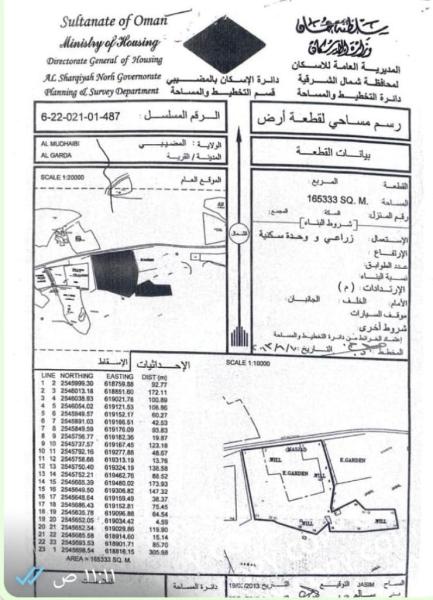 Sultanate of Oman
Ministry of Housing
Directorate General of Housing
AL Sharqiyah Norh Governorate
Planning & Survey Department
سلطنة عمان
وزارة الإسكان
المديرية العامة للاسكان
لمحافظة شمال الشرقية
دائرة التخطيط والمساحة
دائرة الإسكان بالمضيبي
قسم التخطيط والمساحة
رسم مساحي لقطعة أرض
الرقم المسلسل : 6-22-021-01-487
بيانات القطعة
الولاية : المضيبي
AL MUDHAIBI
المدينة / القرية
AL GARDA
SCALE 1:20000
الموقع العام
الشمال
القطعة
المربع
المساحة: 165333 SQ. M.
رقم المنزل
السكة
المجمع:
[شروط البناء]
الإستعمال: زراعي و وحدة سكنية
الإرتفاع:
عدد الطوابق:
نسبة البناء:
الإرتدادات: ( م )
الأمام:
الخلف:
الجانبان:
موقف السيارات
شروط أخرى
إعتماد الخرائط من دائرة التخطيط والمساحة
المخطط
التاريخ
الإحداثيات
الإسقاط
SCALE 1:10000
LINE NORTHING EASTING DIST (m)
1 2 2545999.30 618759.88 92.77
2 3 2546013.18 618851.60 172.11
3 4 2546038.93 619021.76 100.89
4 5 2546054.02 619121.53 106.86
5 6 2545949.57 619152.17 60.27
6 7 2545891.03 619166.51 42.53
7 8 2545849.59 619176.09 93.83
8 9 2545756.77 619182.36 19.87
9 10 2545737.57 619167.45 123.18
10 11 2545792.16 619277.88 48.67
11 12 2545758.66 619313.19 13.76
12 13 2545750.40 619324.19 138.58
13 14 2545752.21 619462.76 88.52
14 15 2545665.39 619480.02 173.93
15 16 2545649.50 619306.82 147.32
16 17 2545645.54 619159.49 38.37
17 18 2545686.43 619152.81 75.45
18 19 2545635.78 619096.88 64.54
19 20 2545652.05 619034.42 4.59
20 21 2545652.54 619029.86 119.90
21 22 2545585.68 618914.60 15.14
22 23 2545593.53 618901.71 85.70
23 1 2545698.54 618816.15 305.98
AREA = 165333 SQ. M.
MASJAD
E.GARDEN
E.GARDEN
WILL
WILL
WILL
WILL
JASIM
المساح
التوقيع
التاريخ
19/02/2013
دائرة المساحة
١١:١١ ص